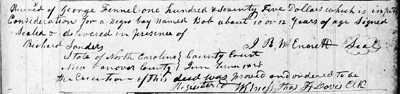 Received of George Fennel one hundred & seventy Five Dollars which is in full
Consideration for a Negroe boy Named Bob about 10 or 12 years of age Signed
Sealed & delivered in presence of
Richard Sanders J. B. Seal
State of North Carolina } County Court
New Hanover County } June Term
the Execution of this deed was proved and ordered to be
Registered Witness Thos F. Davis Clk